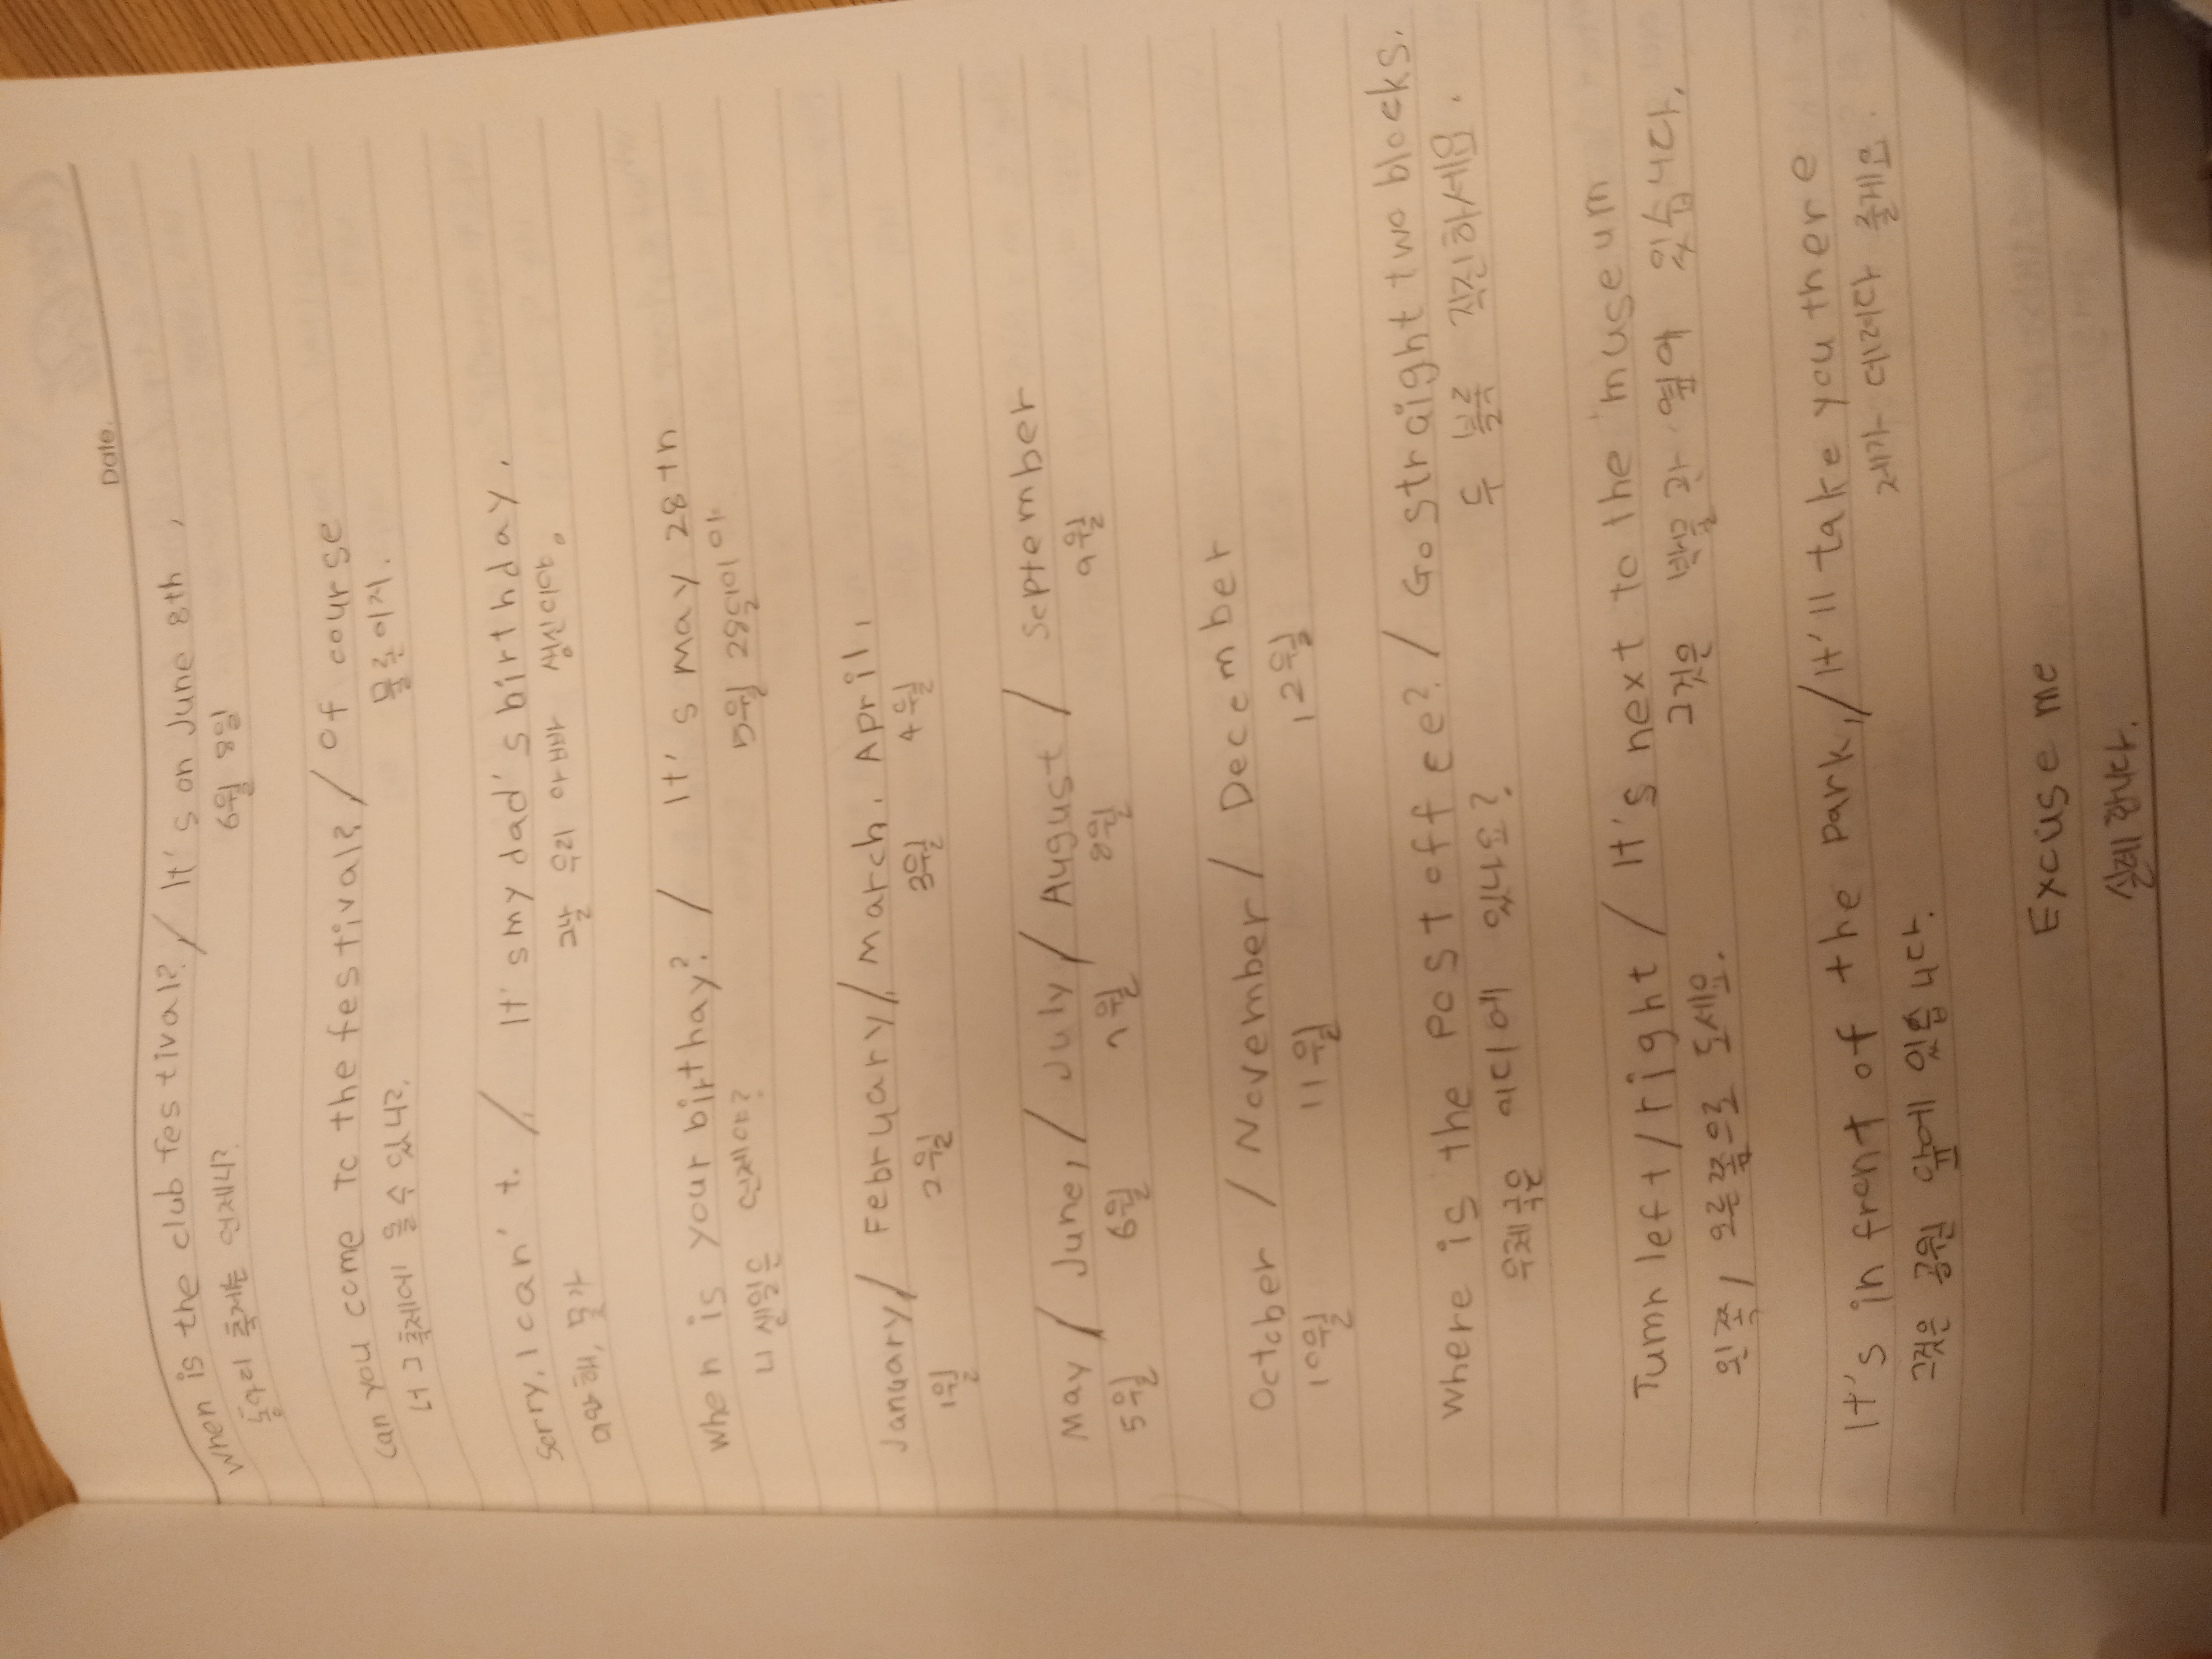 Date.
When is the club festival? / It's on June 8th,
동아리 축제는 언제니? 6월 8일
Can you come to the festival? / Of course
너 그 축제에 올 수 있니? 물론이지.
Sorry, I can't. / It's my dad's birthday.
미안해, 못가 그날 우리 아빠 생신이야.
When is your birthay? / It's may 28th
니 생일은 언제야? 5월 28일이야
January / February / march. April,
1월 2월 3월 4월
May / June, / July / August / september
5월 6월 7월 8월 9월
October / November / December
10월 11월 12월
Where is the post offee? / Go straight two blocks.
우체국은 어디에 있나요? 두 블록 직진하세요.
Tumn left / right / It's next to the museum
왼쪽 / 오른쪽으로 도세요. 그것은 박물관 옆에 있습니다.
It's in front of the park, / It'll take you there
그것은 공원 앞에 있습니다. 제가 데려다 줄게요.
Excuse me
실례합니다.